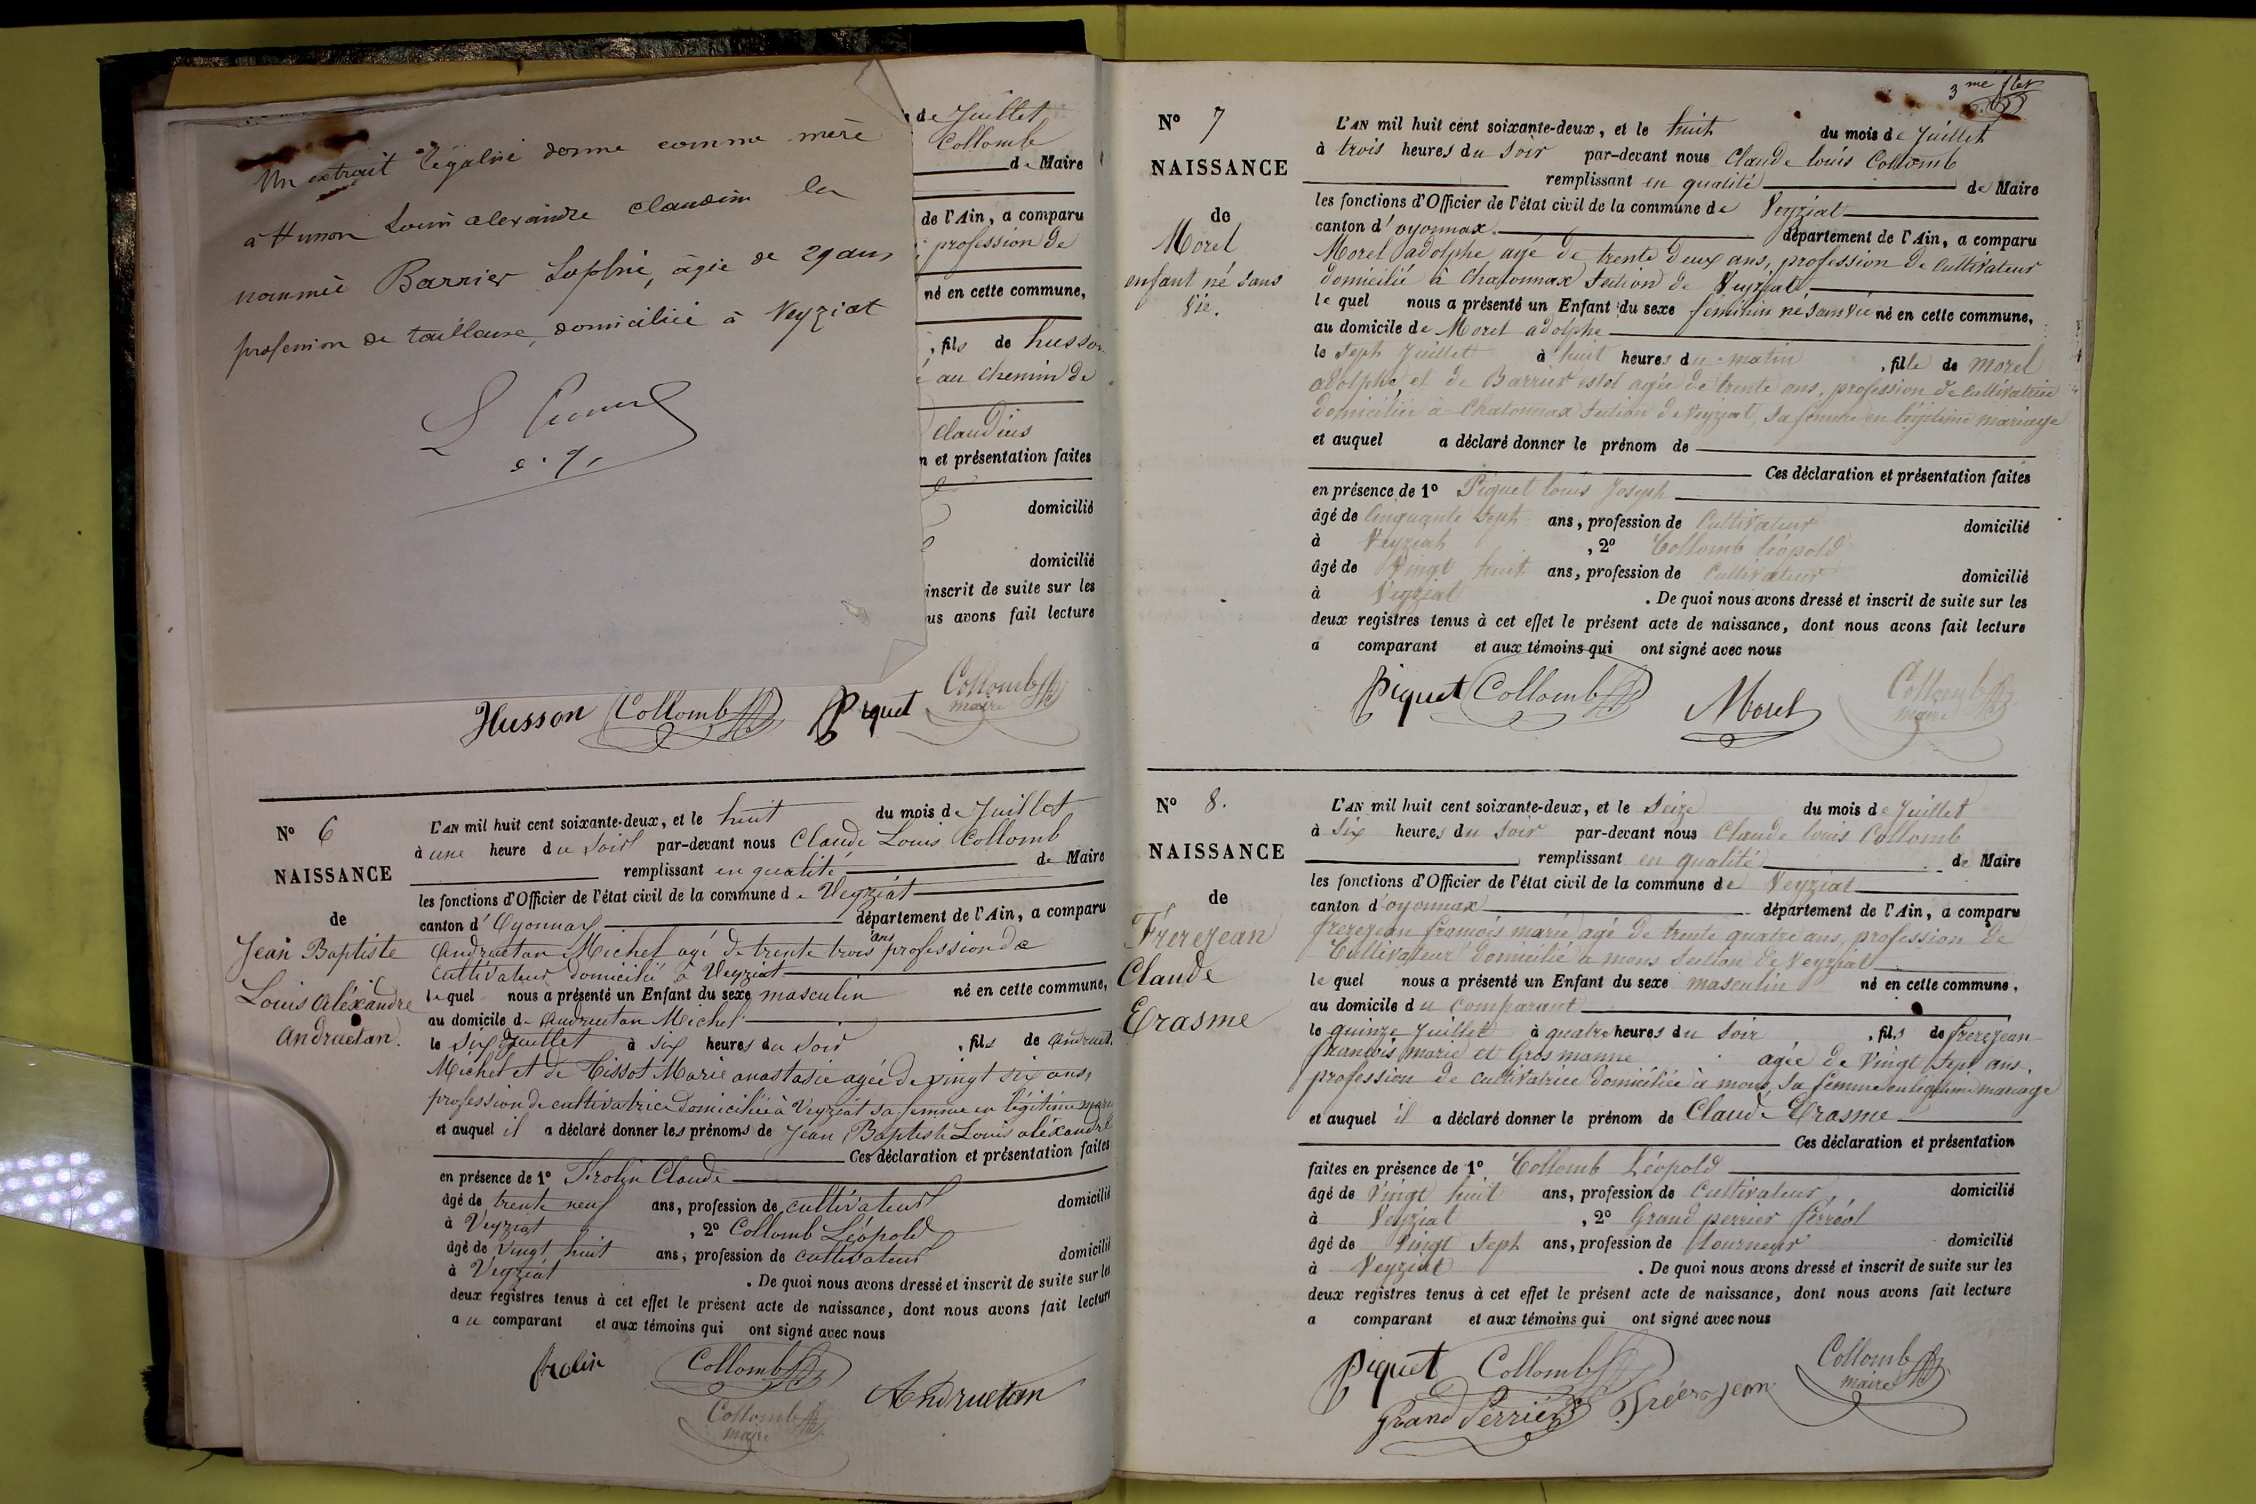 Un extrait légalisé donne comme mère
à Husson Louis alexandre claudius la
nommée Barrier Sophie, âgée de 29 ans,
profession de tailleuse, domiciliée à Veyziat
de Juillet
Collomb
de Maire
de l'Ain, a comparu
profession de
né en cette commune,
, fils de husson
au chemin de
claudius
n et présentation faites
domicilié
domicilié
inscrit de suite sur les
us avons fait lecture
Husson Collomb Piquet Collomb
maire
N° 6
NAISSANCE
de
Jean Baptiste
Louis aléxandre
andruétan.
L'AN mil huit cent soixante-deux, et le huit du mois de Juillet
à une heure du soir par-devant nous Claude Louis Collomb
remplissant en qualité de Maire
les fonctions d'Officier de l'état civil de la commune de Veyziat
canton d'Oyonnax département de l'Ain, a comparu
andruetan Michel agé de trente trois ans profession de
cultivateur domicilié à Veyziat
lequel nous a présenté un Enfant du sexe masculin né en cette commune,
au domicile d'andruetan Michel
le six Juillet à six heures du soir , fils de andruet.
Michel et de Tissot Marie anastasie agée de vingt six ans,
profession de cultivatrice domiciliée à Veyziat sa femme en légitime mari
et auquel il a déclaré donner les prénoms de Jean Baptiste Louis aléxandre
Ces déclaration et présentation faites
en présence de 1° Frolin Claude
âgé de trente neuf ans, profession de cultivateur domicilié
à Veyziat , 2° Collomb Léopold
âgé de vingt huit ans, profession de cultivateur domicilié
à Veyziat . De quoi nous avons dressé et inscrit de suite sur les
deux registres tenus à cet effet le présent acte de naissance, dont nous avons fait lecture
au comparant et aux témoins qui ont signé avec nous
frolin Collomb Andruetan
Collomb
maire
3me
N° 7
NAISSANCE
de
Morel
enfant né sans
vie.
L'AN mil huit cent soixante-deux, et le huit du mois de Juillet
à trois heures du soir par-devant nous Claude louis Collomb
remplissant en qualité de Maire
les fonctions d'Officier de l'état civil de la commune de Veyziat
canton d'oyonnax. département de l'Ain, a comparu
Morel adolphe agé de trente deux ans, profession de cultivateur
domicilié à Chatonnax section de Veyziat
lequel nous a présenté un Enfant du sexe féminin né sans vie né en cette commune,
au domicile de Morel adolphe
le sept Juillet à huit heures du matin , fille de Morel
adolphe et de Barrier agée de trente ans, profession de cultivatrice
domiciliée à Chatonnax section de Veyziat, sa femme en légitime mariage
et auquel a déclaré donner le prénom de
Ces déclaration et présentation faites
en présence de 1° Piquet louis Joseph
âgé de cinquante sept ans, profession de cultivateur domicilié
à Veyziat , 2° Collomb léopold
âgé de vingt huit ans, profession de cultivateur domicilié
à Veyziat . De quoi nous avons dressé et inscrit de suite sur les
deux registres tenus à cet effet le présent acte de naissance, dont nous avons fait lecture
a comparant et aux témoins qui ont signé avec nous
Piquet Collomb Morel Collomb
maire
N° 8.
NAISSANCE
de
Frèrejean
Claude
Erasme
L'AN mil huit cent soixante-deux, et le seize du mois de Juillet
à six heures du soir par-devant nous Claude louis Collomb
remplissant en qualité de Maire
les fonctions d'Officier de l'état civil de la commune de Veyziat
canton d'oyonnax département de l'Ain, a comparu
frerejean françois marie agé de trente quatre ans, profession de
Cultivateur domicilié à mons section de Veyziat
lequel nous a présenté un Enfant du sexe masculin né en cette commune,
au domicile du comparant
le quinze Juillet à quatre heures du soir , fils de frerejean
francois marie et Gros manne agée de vingt sept ans,
profession de cultivatrice domiciliée à mons, sa femme en légitime mariage
et auquel il a déclaré donner le prénom de Claude Erasme
Ces déclaration et présentation
faites en présence de 1° Collomb Léopold
âgé de vingt huit ans, profession de cultivateur domicilié
à Veyziat , 2° Grand perrier férréol
âgé de vingt sept ans, profession de tourneur domicilié
à Veyziat . De quoi nous avons dressé et inscrit de suite sur les
deux registres tenus à cet effet le présent acte de naissance, dont nous avons fait lecture
a comparant et aux témoins qui ont signé avec nous
Piquet Collomb Collomb
maire
Grand Perrier Frérejean